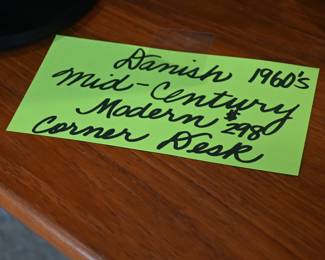 Danish 1960's
Mid-Century
Modern $298
Corner Desk